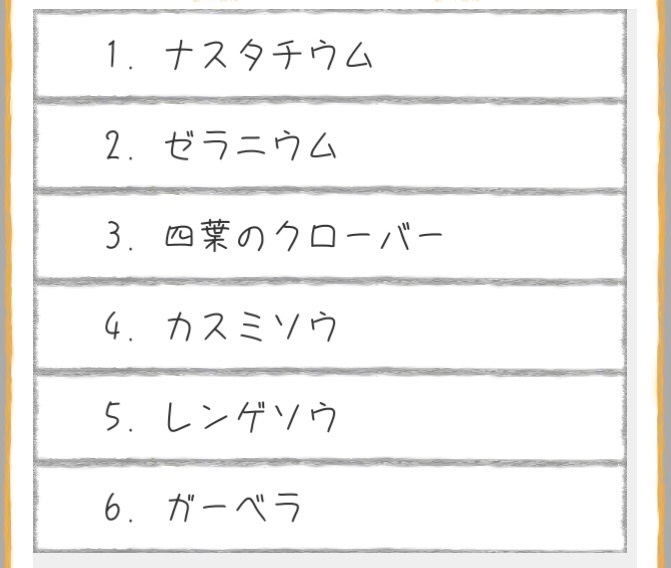 1. ナスタチウム
2. ゼラニウム
3. 四葉のクローバー
4. カスミソウ
5. レンゲソウ
6. ガーベラ